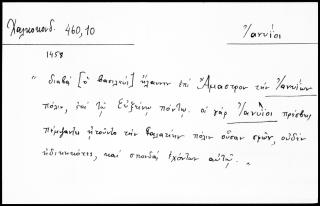 Χαλκοκονδ. 460,10
Ἰανύϊοι
1458
" διαβὰ [ὁ βασιλεὺς] ἤλαυνεν ἐπὶ Ἄμαστρον τὴν Ἰανυΐων
πόλιν, ἐπὶ τῷ Εὐξείνῳ πόντῳ. οἱ γὰρ Ἰανύϊοι πρέσβεις
πέμψαντες ᾐτοῦντο τὴν Γαλατίην πόλιν οὖσαν σφῶν, οὐδὲν
ἠδικηκότες, καὶ σπονδὰς ἐχόντων αὐτῷ. "